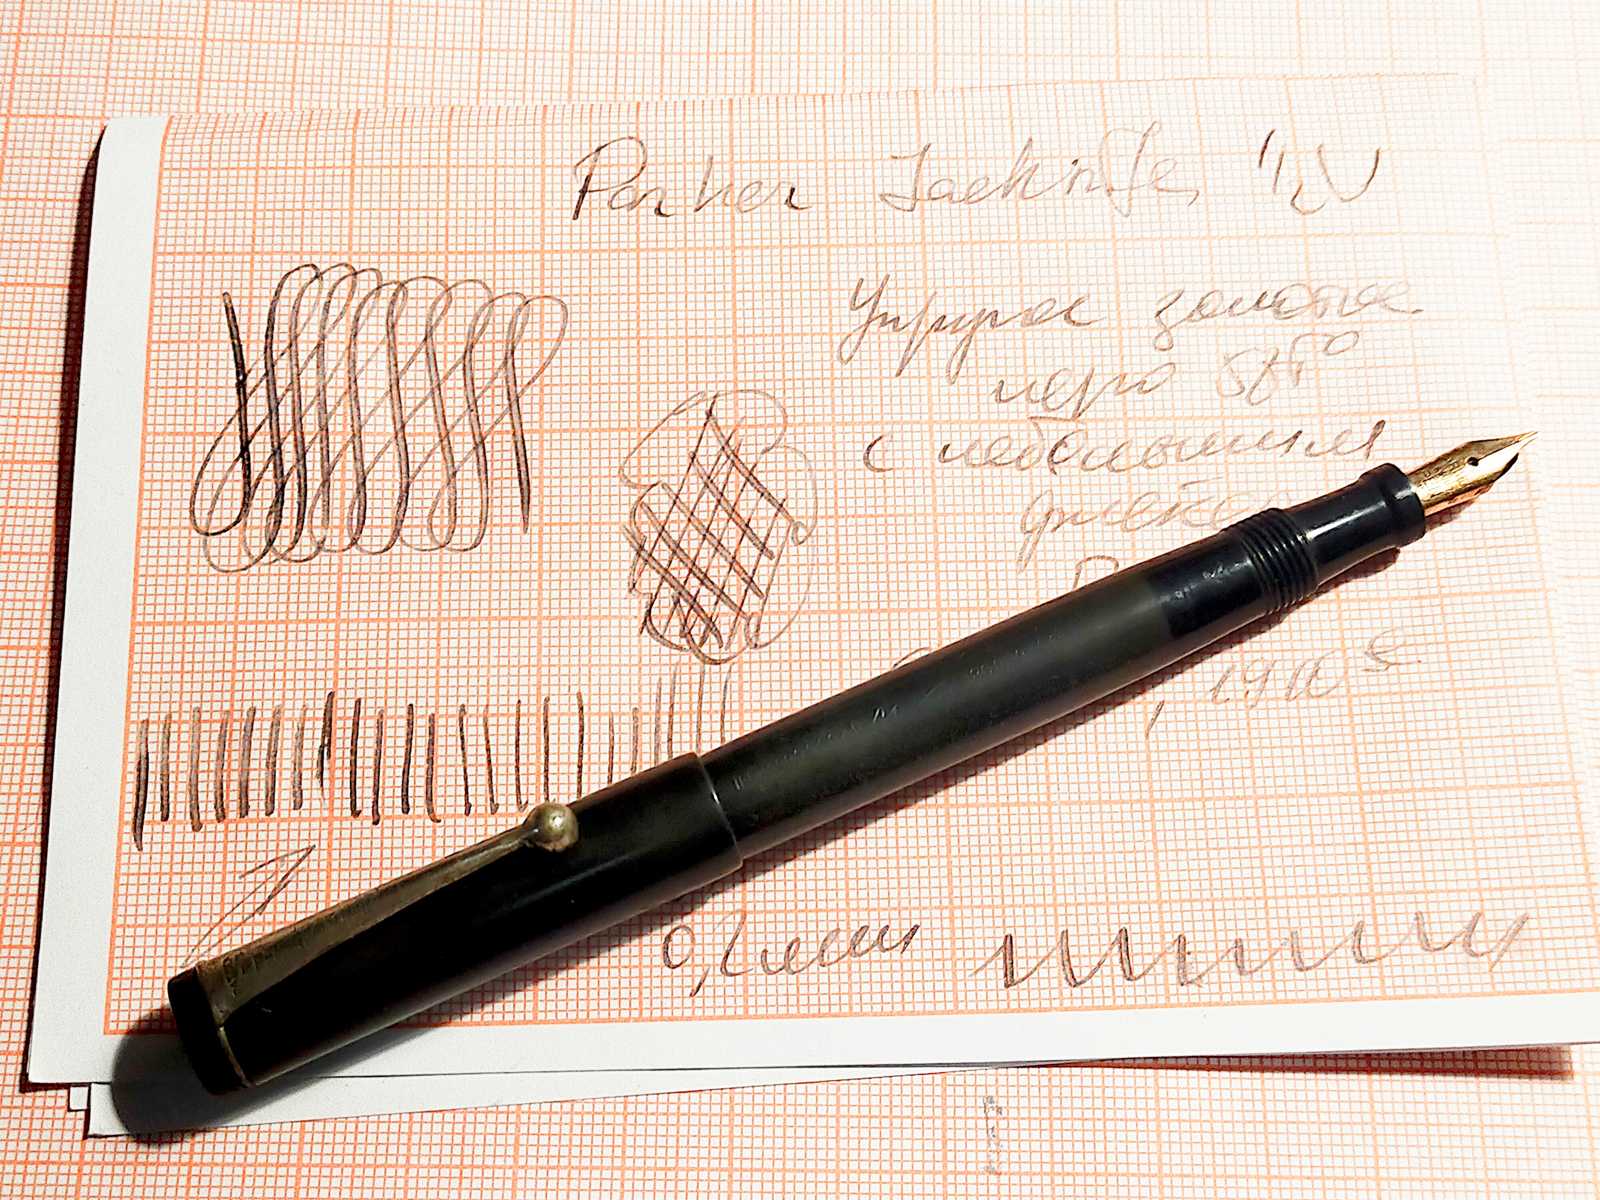 Parker Jacknife,
Упругое золотое
перо 585°
с небольшим
флексом
0,2 мм